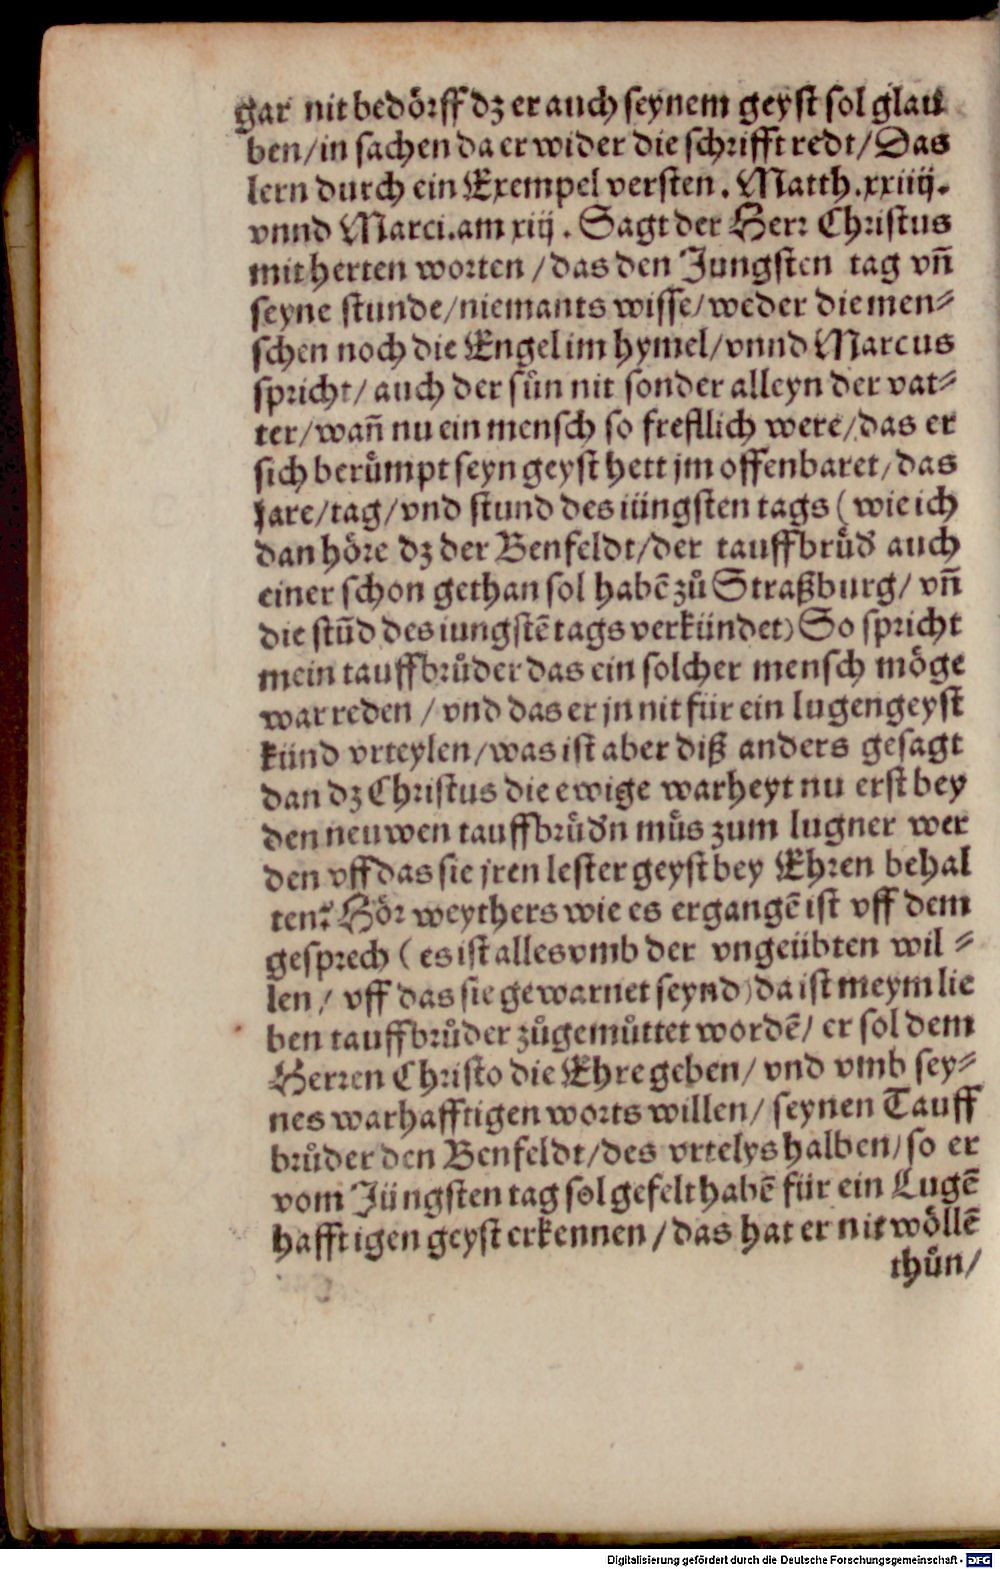 gar nit bedörff dz er auch seynem geyst sol glau
ben/in sachen da er wider die schrifft redt/Das
lern durch ein Exempel versten. Matth.xxiiij.
vnnd Marci.am xiij. Sagt der Herr Christus
mit herten worten/das den Jungsten tag vñ
seyne stunde/niemants wisse/weder die men⸗
schen noch die Engel im hymel/vnnd Marcus
spricht/auch der sůn nit sonder alleyn der vat⸗
ter/wañ nu ein mensch so frefllich were/das er
sich berůmpt seyn geyst hett jm offenbaret/das
jare/tag/vnd stund des iüngsten tags (wie ich
dan höre dz der Benfeldt/der tauffbrůd̕ auch
einer schon gethan sol habē zů Straßburg/vñ
die stūd des iungstē tags verkündet) So spricht
mein tauffbrůder das ein solcher mensch möge
war reden/vnd das er jn nit für ein lugengeyst
künd vrteylen/was ist aber diß anders gesagt
dan dz Christus die ewige warheyt nu erst bey
den neuwen tauffbrůd̕n můs zum lugner wer
den vff das sie jren lester geyst bey Ehren behal
ten? Hör weythers wie es ergangē ist vff dem
gesprech (es ist alles vmb der vngeübten wil⸗
len/vff das sie gewarnet seynd) da ist meym lie
ben tauffbrůder zůgemůttet wordē/er sol dem
Herren Christo die Ehre geben/vnd vmb sey⸗
nes warhafftigen worts willen/seynen Tauff
brůder den Benfeldt/des vrtelys halben/so er
vom Jüngsten tag sol gefelt habē für ein Lugē
hafftigen geyst erkennen/das hat er nit wöllē
thůn/
Digitalisierung gefördert durch die Deutsche Forschungsgemeinschaft - DFG